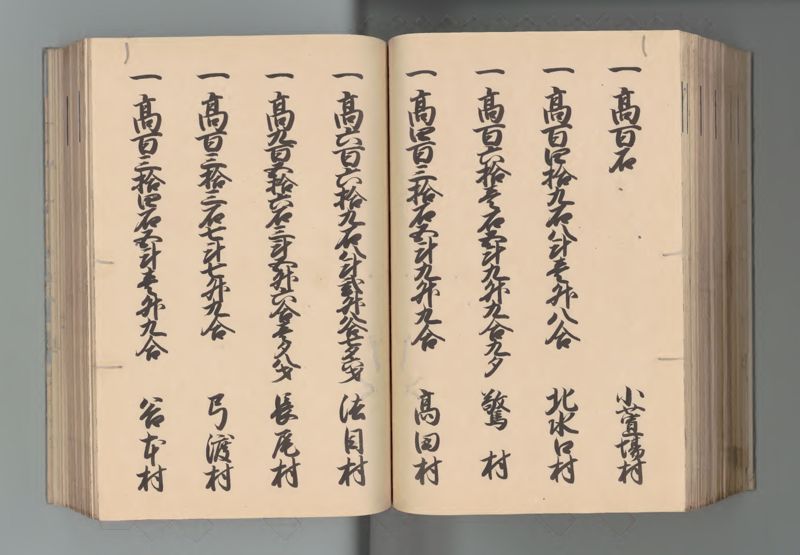 一 高百石 小萱場村
一 高百四拾九石八斗壱升八合 北水口村
一 高百六拾壱石五斗九升九合九夕 鷲村
一 高四百三拾石五斗九升九合 高田村
一 高六百六拾九石八斗弐升八合七夕 法目村
一 高九百五拾六石三斗五升六合壱夕八才 長尾村
一 高百三拾三石七斗七升九合 弓渡村
一 高百三拾四石五斗壱升九合 谷本村